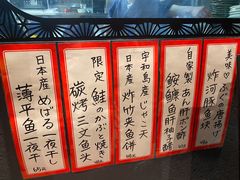 美味♡ふぐの唐揚げ
炸河豚魚球
自家製あん肝ポン酢
鮟鱇魚肝柚子醋
宇和島産じゃこ天
日本産炸竹夹魚餅
限定鮭のかぶと焼き
炭烤三文魚头
日本産めばる一夜干し
薄平魚一夜干